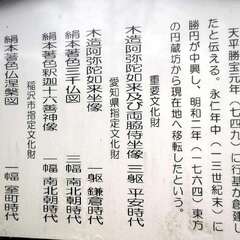 天平勝宝元年（七四九）に行基が創建し
たと伝える。永仁年中（一三世紀末）に
勝円が中興し、明和二年（一七六四）東方
の円蔵坊から現在地へ移転したという。
重要文化財
木造阿弥陀如来及び両脇侍坐像 三躯 平安時代
愛知県指定文化財
木造阿弥陀如来坐像 一躯 鎌倉時代
絹本著色三千仏図 三幅 南北朝時代
絹本著色釈迦十六善神像 一幅 南北朝時代
稲沢市指定文化財
絹本著色仏涅槃図 一幅 室町時代